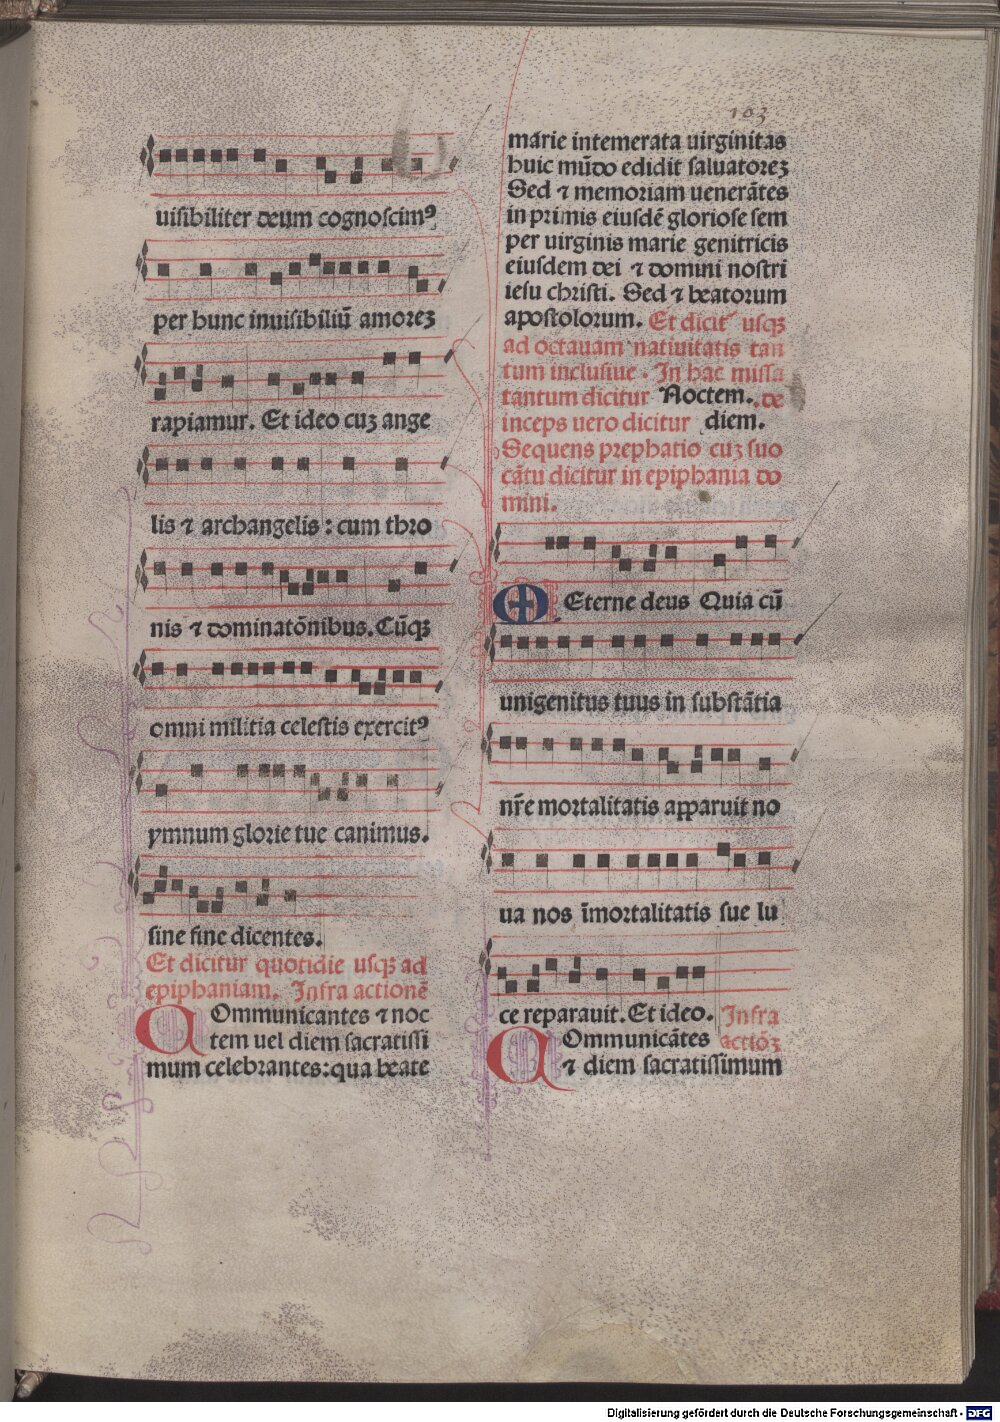 103
uisibiliter deum cognoscimꝰ
per hunc inuisibiliū amoreꝫ
rapiamur. Et ideo cuꝫ ange
lis ⁊ archangelis : cum thro
nis ⁊ dominatōnibus. Cūqꝫ
omni militia celestis exercitꝰ
ymnum glorie tue canimus.
sine fine dicentes.
Et dicitur quotidie usqꝫ ad
epiphaniam. Infra actionē
COmmunicantes ⁊ noc
tem uel diem sacratissi
mum celebrantes: qua beate
marie intemerata uirginitas
huic mūdo edidit saluatoreꝫ
Sed ⁊ memoriam uenerātes
in primis eiusdē gloriose sem
per uirginis marie genitricis
eiusdem dei ⁊ domini nostri
iesu christi. Sed ⁊ beatorum
apostolorum. Et dicit᷑ usqꝫ
ad octauam natiuitatis tan
tum inclusiue. In hac missa
tantum dicitur Noctem. de
inceps uero dicitur diem.
Sequens prephatio cuꝫ suo
cātu dicitur in epiphania do
mini.
Eterne deus Quia cū
unigenitus tuus in substātia
nr̄e mortalitatis apparuit no
ua nos īmortalitatis sue lu
ce reparauit. Et ideo. Infra
COmmunicātes actiōꝫ
⁊ diem sacratissimum
Digitalisierung gefördert durch die Deutsche Forschungsgemeinschaft - DFG